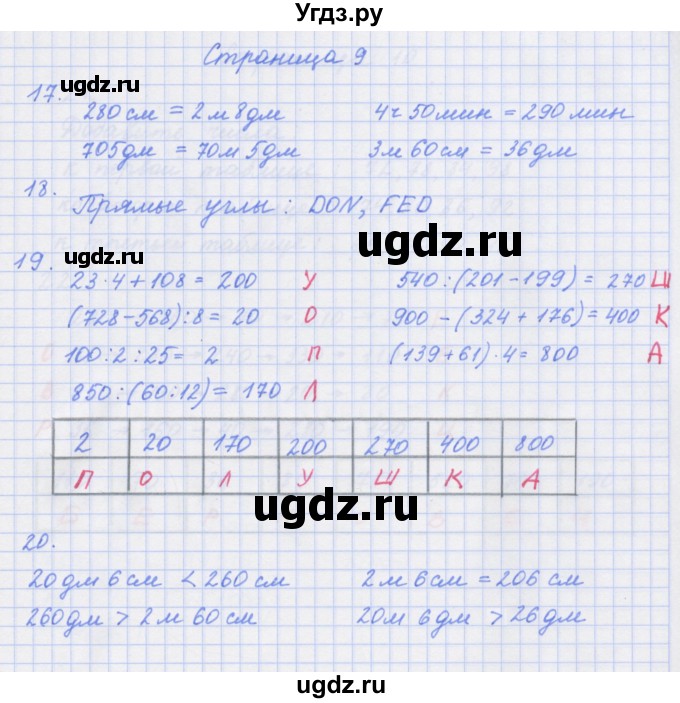 Угдз.ру
Страница 9
17.
280 см = 2 м 8 дм 4 ч 50 мин = 290 мин
705 дм = 70 м 5 дм 3 м 60 см = 36 дм
18.
Прямые углы: DON, FED
19.
23·4+108 = 200 У 540:(201-199) = 270 Ш
(728-568):8 = 20 О 900-(324+176)=400 К
100:2:25= 2 П (139+61)·4=800 А
850:(60:12)= 170 Л
2 20 170 200 270 400 800
П О Л У Ш К А
20.
20 дм 6 см < 260 см 2 м 6 см = 206 см
260 дм > 2 м 60 см 20 м 6 дм > 26 дм
ugdz.ru
ugdz.ru
ugdz.ru
ugdz.ru
ugdz.ru
ugdz.ru
ugdz.ru
ugdz.ru
ugdz.ru